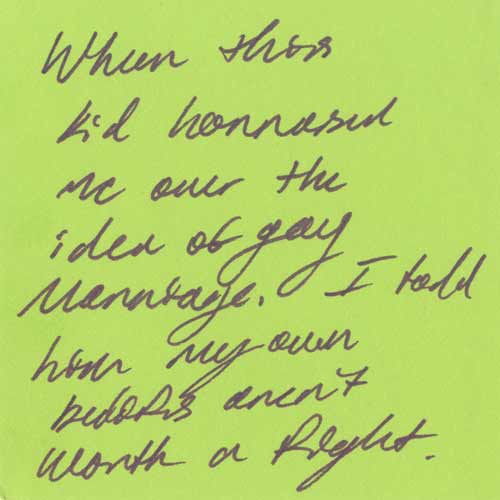 When this
kid harrased
me over the
idea of gay
Marriage. I told
him my own
beliefs aren't
worth a fight.